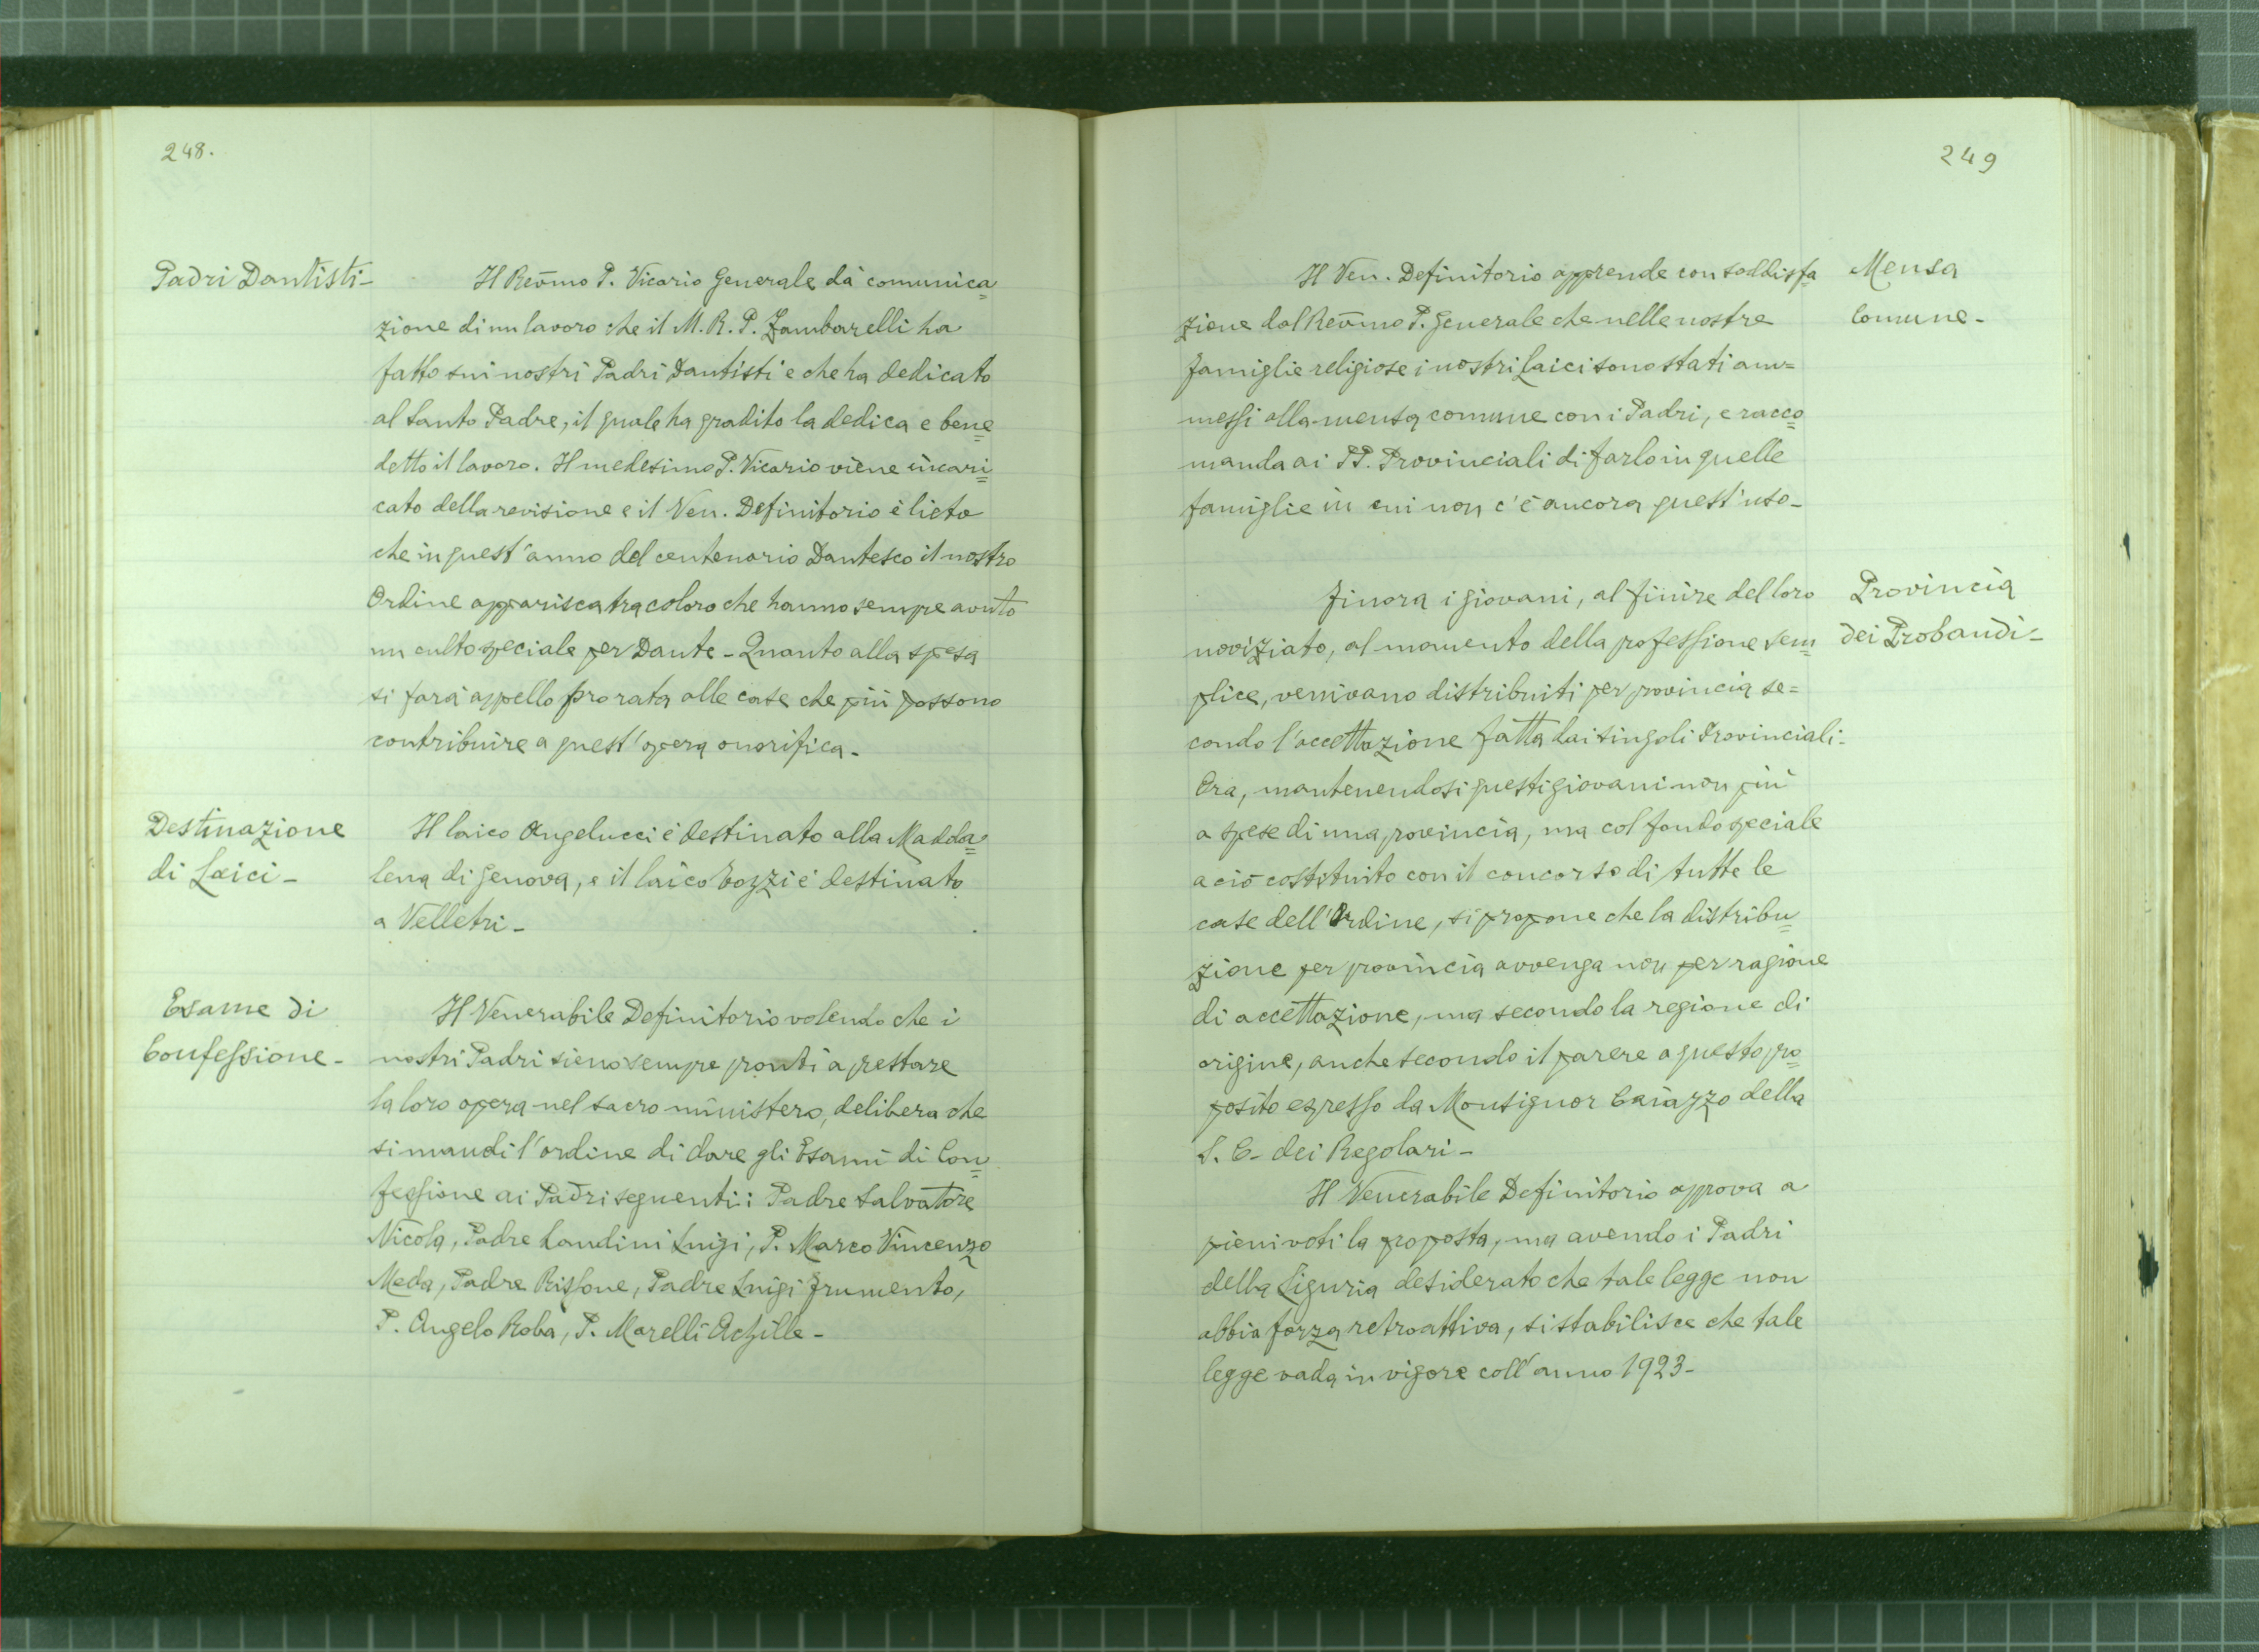 248.
Padri Dantisti-
Il Rev̄mo P. Vicario Generale dà comunica=
zione di un lavoro che il M. R. P. Zambarelli ha
fatto sui nostri Padri Dantisti e che ha dedicato
al Santo Padre, il quale ha gradito la dedica e bene=
detto il lavoro. Il medesimo P. Vicario viene incari=
cato della revisione e il Ven. Definitorio è lieto
che in quest'anno del centenario Dantesco il nostro
Ordine apparisca tra coloro che hanno sempre avuto
un culto speciale per Dante - Quanto alla spesa
si farà appello pro rata alle case che più possono
contribuire a quest'opera onorifica -
Destinazione
di Laici -
Il laico Angelucci è destinato alla Madda=
lena di Genova, e il laico Bozzi è destinato
a Velletri -
Esame di
Confessione -
Il Venerabile Definitorio volendo che i
nostri Padri sieno sempre pronti a prestare
la loro opera nel sacro ministero, delibera che
si mandi l'ordine di dare gli Esami di Con=
fessione ai Padri seguenti: Padre Salvatore
Nicola, Padre Landini Luigi, P. Marco Vincenzo
Meda, Padre Rissone, Padre Luigi Frumento,
P. Angelo Roba, P. Marelli Achille -
249
Mensa
Comune -
Il Ven. Definitorio apprende con soddisfa=
zione dal Rev̄mo P. Generale che nelle nostre
famiglie religiose i nostri Laici sono stati am=
messi alla mensa comune con i Padri, e racco=
manda ai PP. Provinciali di farlo in quelle
famiglie in cui non c'è ancora quest'uso -
Provincia
dei Probandi -
Finora i giovani, al finire del loro
noviziato, al momento della professione sem=
plice, venivano distribuiti per provincia se=
condo l'accettazione fatta dai singoli Provinciali -
Ora, mantenendosi questi giovani non più
a spese di una provincia, ma col fondo speciale
a ciò costituito con il concorso di tutte le
case dell'Ordine, si propone che la distribu=
zione per provincia avvenga non per ragione
di accettazione, ma secondo la regione di
origine, anche secondo il parere a questo pro=
posito espresso da Monsignor Caiazzo della
S. C. dei Regolari -
Il Venerabile Definitorio approva a
pieni voti la proposta, ma avendo i Padri
della Liguria desiderato che tale legge non
abbia forza retroattiva, si stabilisce che tale
legge vada in vigore coll'anno 1923 -